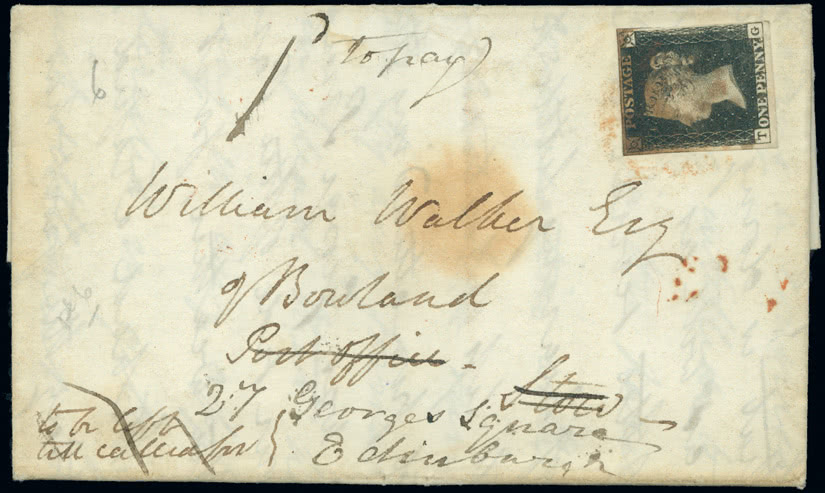 1 to pay
POSTAGE
ONE PENNY
T G
William Walker Esq
of Bowland
Post Office -
Stow
27 Georges Square
Edinburgh
to be left
till called for